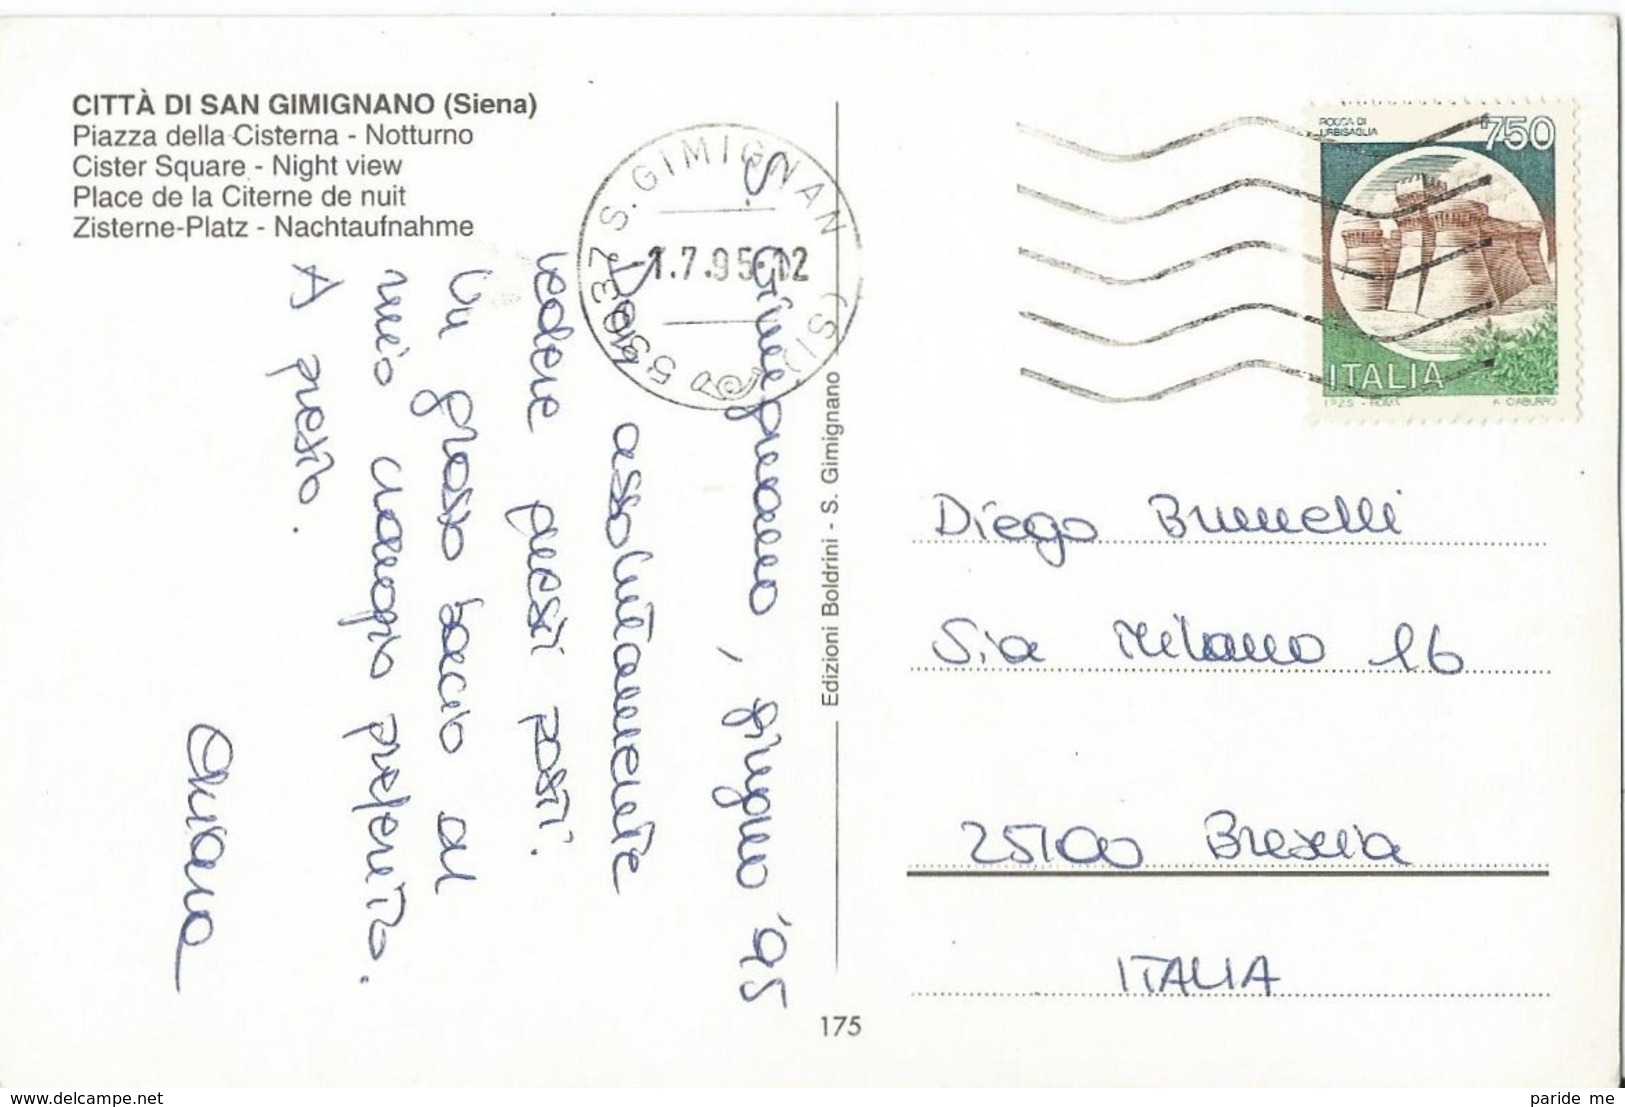 CITTÀ DI SAN GIMIGNANO (Siena)
Piazza della Cisterna - Notturno
Cister Square - Night view
Place de la Citerne de nuit
Zisterne-Platz - Nachtaufnahme
S. Gimignano, giugno '95
Devi assolutamente
vedere questi posti.
Un grosso bacio al
mio viaggio preferito.
A presto.
Chiara
53037 S. GIMIGNANO (SI)
1.7.95-12
Edizioni Boldrini - S. Gimignano
175
ROCCA DI
URBISAGLIA
750
ITALIA
I.P.Z.S. - ROMA
Diego Brunelli
Via Milano 16
25100 Brescia
ITALIA
delcampe.net
paride me